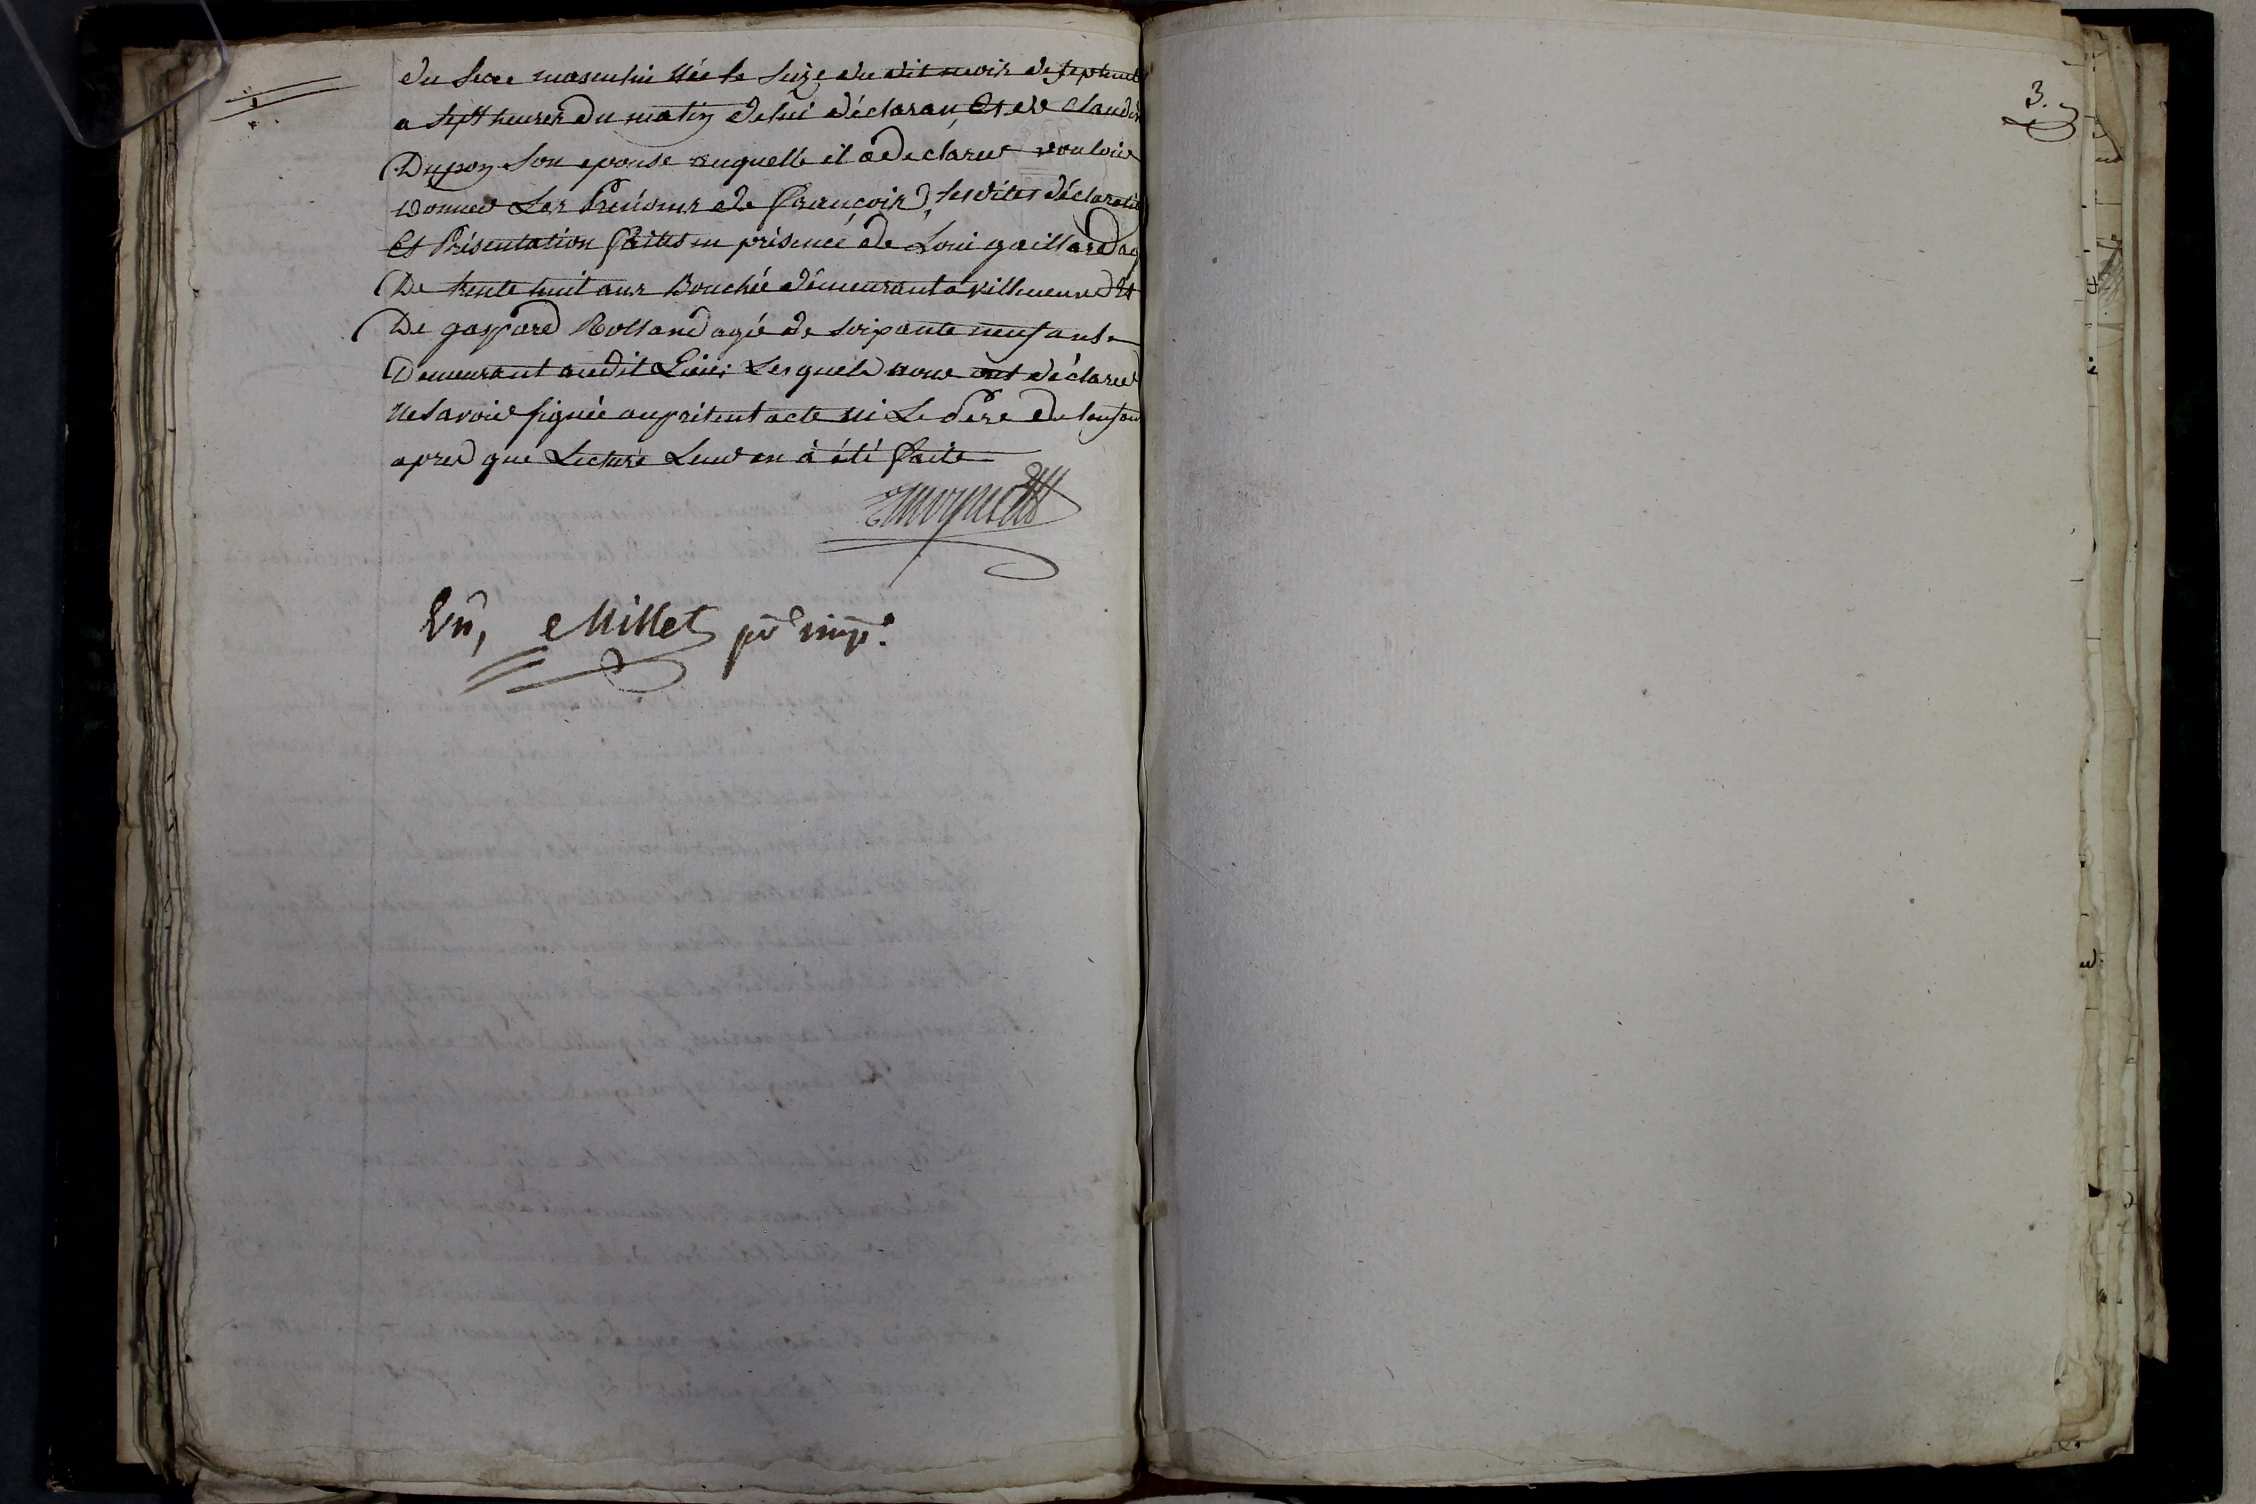 du Sexe masculin Née le Seize du dit mois de septemb
a Sept heures du matin de lui déclaran, Et de Claudi
Dupon Son epouse auquelle il a declaree vouloir
donner Les Prénoms de François, les dites déclaratio
Et Présentation faites en présence de Loui gaillard ag
De trente huit ans Bouchée démeurant a villneuve Et
De gaspard Rolland agée de Soixante neuf ans
Demeurant audit Lieu; Lesquels nous ont déclaree
Ne Savoir signée au présent acte ni Le Pere de lenfan
apres que Lecture Leur en à été faite
Vu, Millet
3.